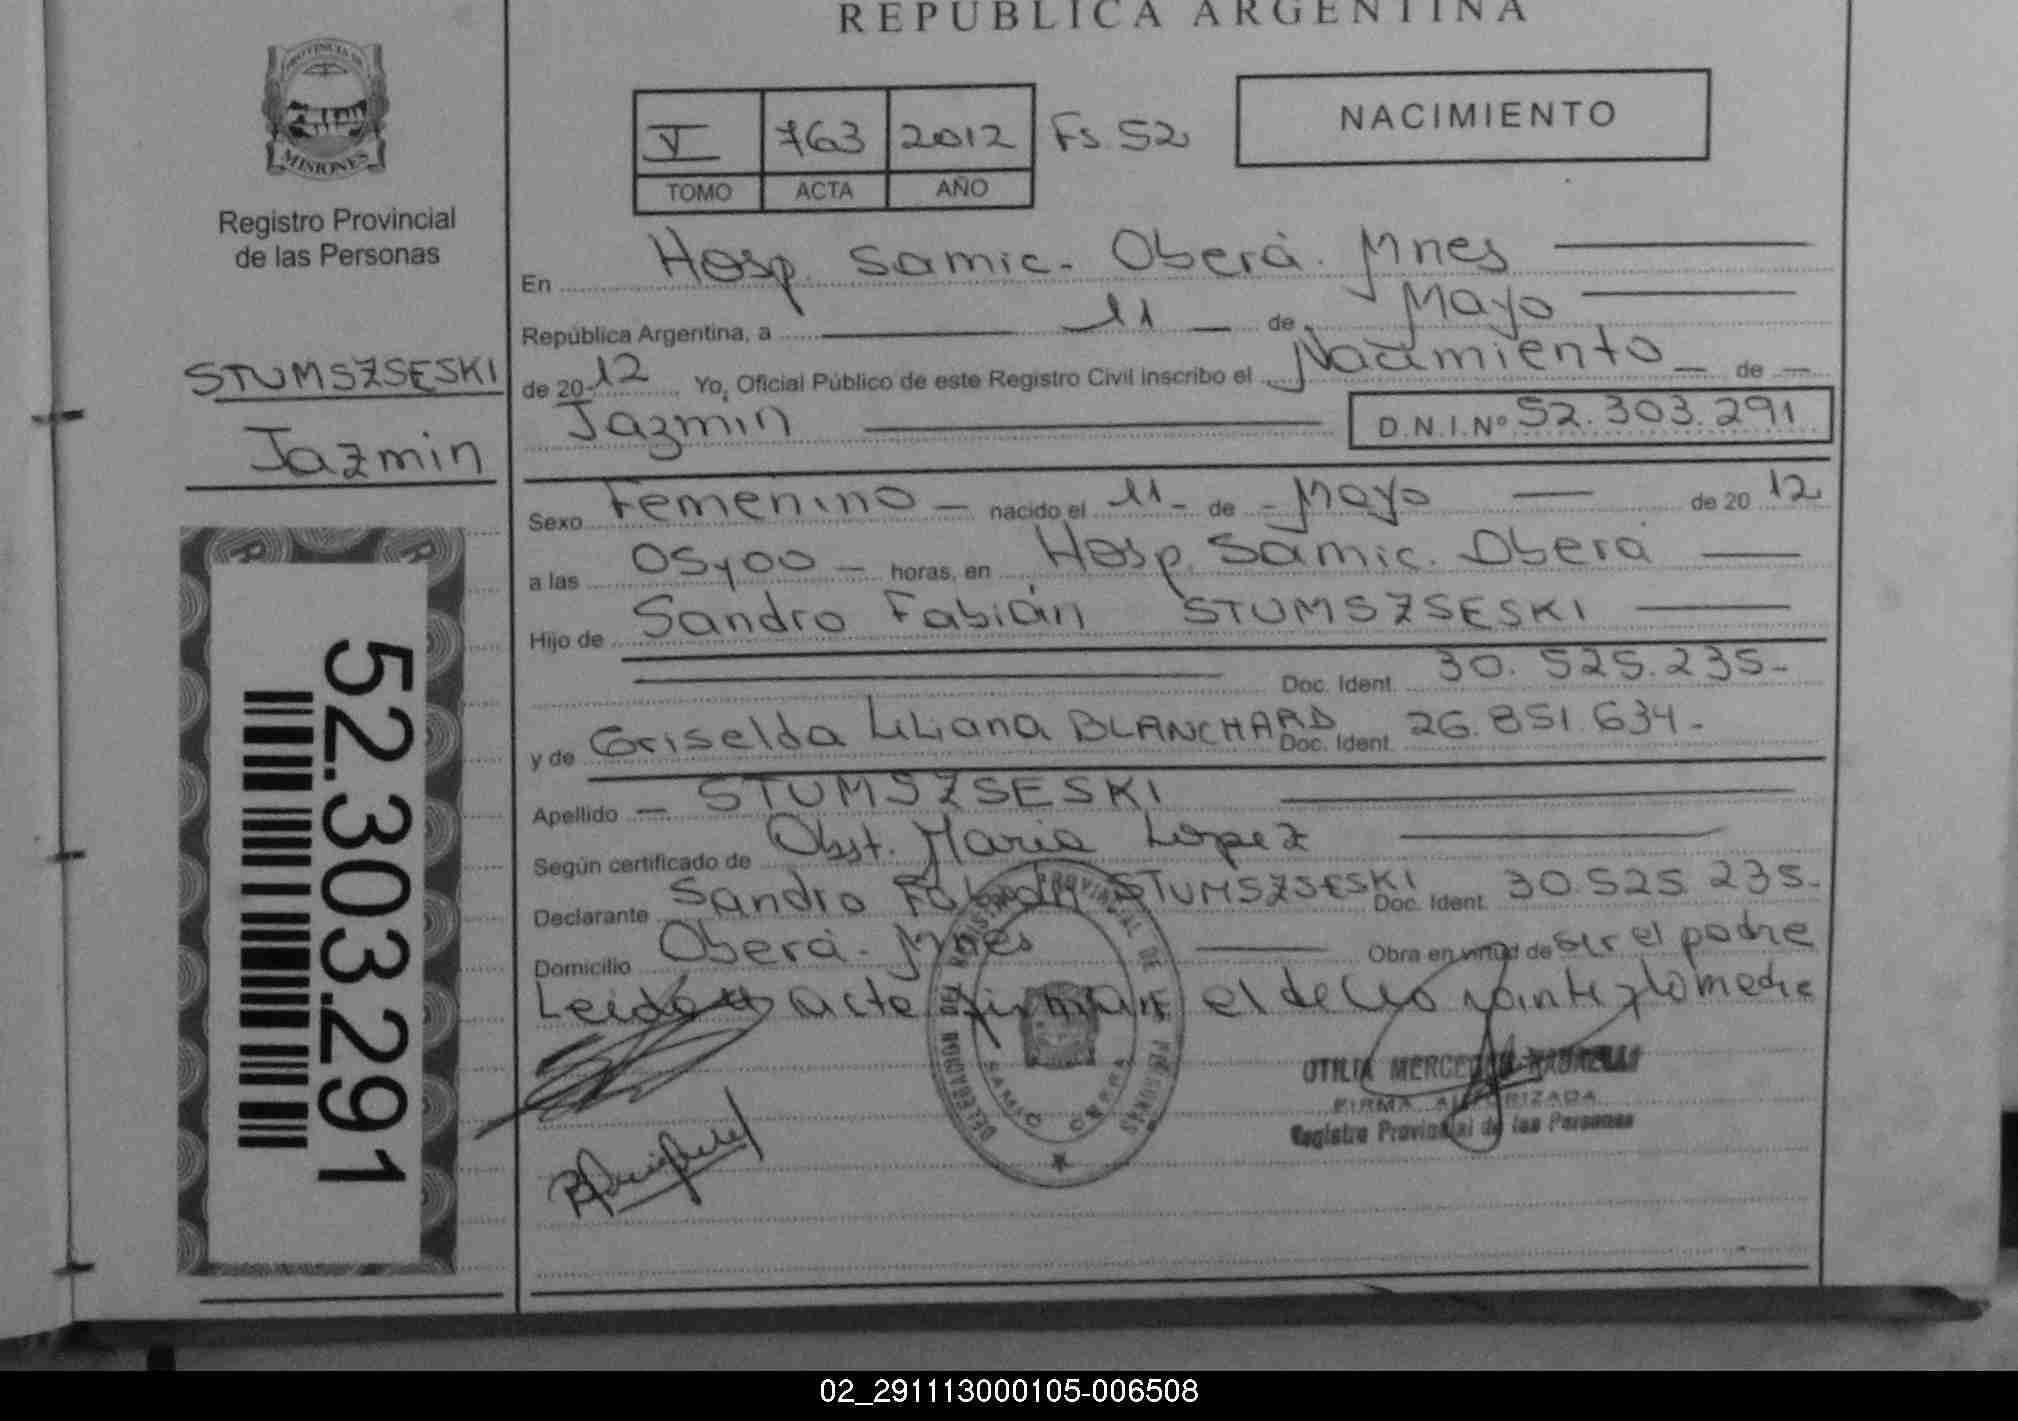 REPUBLICA ARGENTINA
PROVINCIA DE
MISIONES
Registro Provincial
de las Personas
V 763 2012 Fs. 52
TOMO ACTA AÑO
NACIMIENTO
STUMSZSESKI
Jazmin
52.303.291
En Hosp. Samic. Oberá. Mnes
República Argentina, a 11 de Mayo
de 2012 Yo, Oficial Público de este Registro Civil inscribo el Nacimiento de
Jazmin D.N.I.Nº 52.303.291
Sexo Femenino nacido el 11 de Mayo de 2012
a las 05,00 horas, en Hosp. Samic. Oberá
Hijo de Sandro Fabián STUMSZSESKI
Doc. Ident. 30.525.235-
y de Griselda Liliana BLANCHARD Doc. Ident. 26.851.634-
Apellido STUMSZSESKI
Según certificado de Obst. Maria Lopez
Declarante Sandro Fabián STUMSZSESKI Doc. Ident. 30.525.235-
Domicilio Oberá. Mnes Obra en virtud de ser el padre
Leida el acta firman el y la madre
REGISTRO PROVINCIAL DE LAS PERSONAS
DELEGACION
SAMIC OBERA
OTILIA
FIRMA AUTORIZADA
Registro Provincial de las Personas
02_291113000105-006508